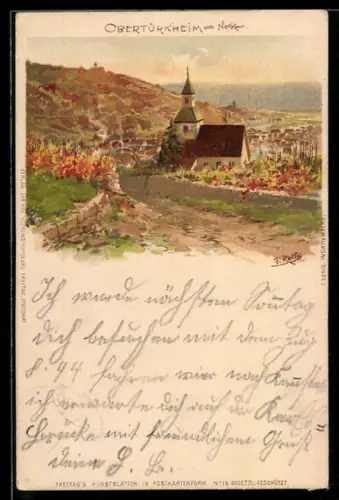 OBERTÜRKHEIM am Neckar.
F. Reiß
Ich werde nächsten Sonntag
dich besuchen mit dem Zug
8.44 fahren wir nach
ich erwarte dich auf der
Brücke mit freundlichem Gruß
deine L. B.
FREYTAG'S KUNSTBLÄTTER IN POSTKARTENFORM. GESETZL. GESCHÜTZT.